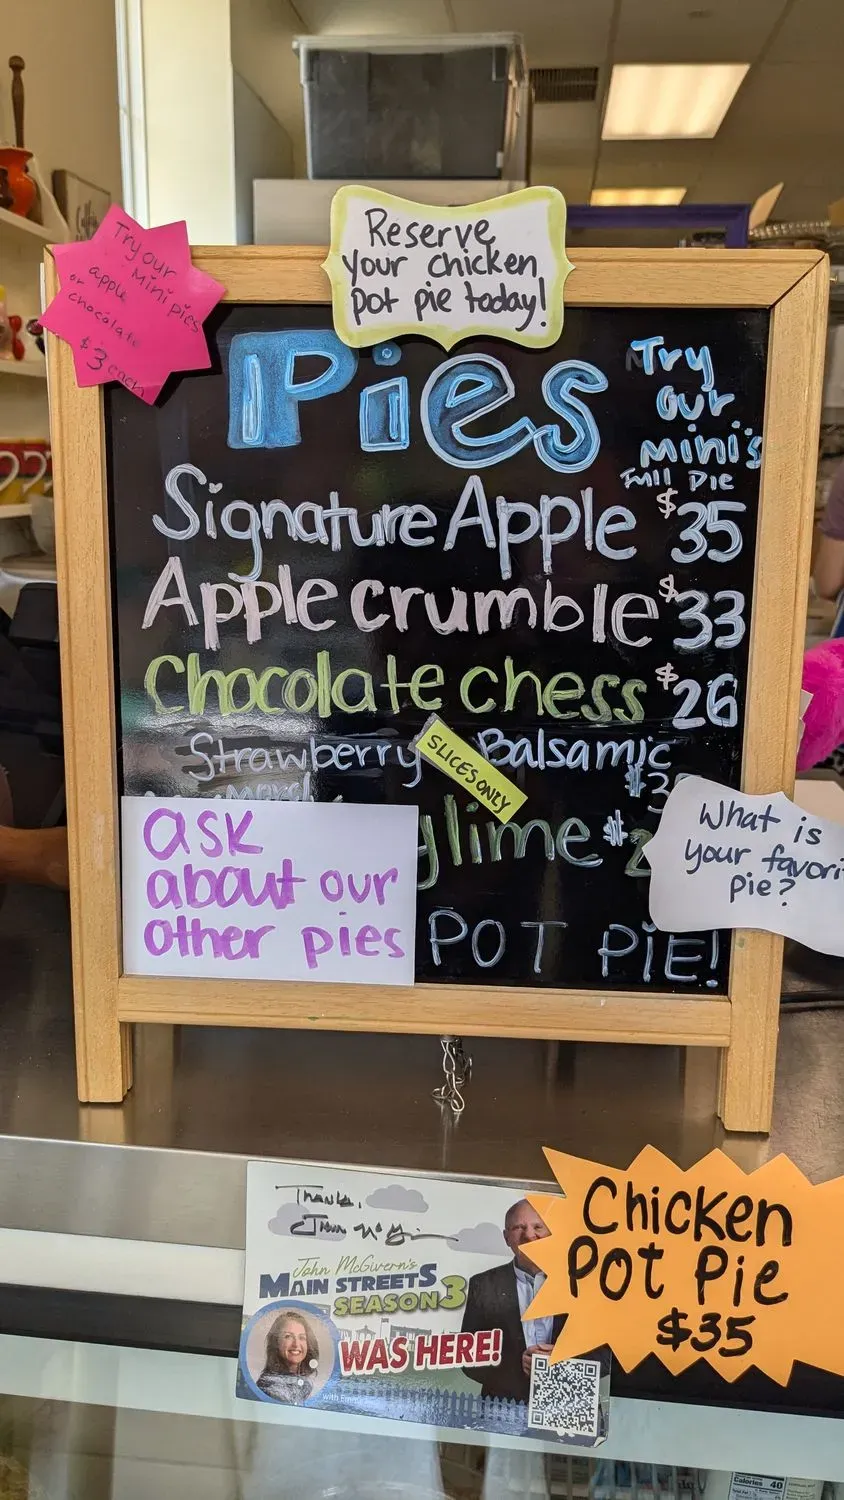 Try our
mini pies
apple
or
chocolate
$3 each
Reserve
your chicken
pot pie today!
Pies
Try
our
Mini's
Full Pie
Signature Apple $35
Apple crumble $33
Chocolate chess $26
Strawberry Balsamic
SLICES ONLY
lime $2
ask
about our
other pies
POT PiE!
What is
your
pie?
Thanks,
John McGivern's
MAIN STREETS
SEASON 3
WAS HERE!
Chicken
Pot Pie
$35
Calories 40